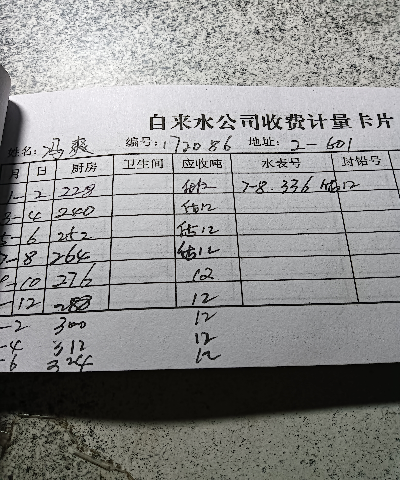 自来水公司收费计量卡片
姓名：冯爽 编号：172086 地址：2-601
月 日 厨房 卫生间 应收吨 水表号 封铅号
1-2 228 估12 7-8.336 估12
3-4 240 估12
5-6 252 估12
7-8 264 估12
9-10 276 12
-12 288 12
-2 300 12
-4 312 12
-6 324 12